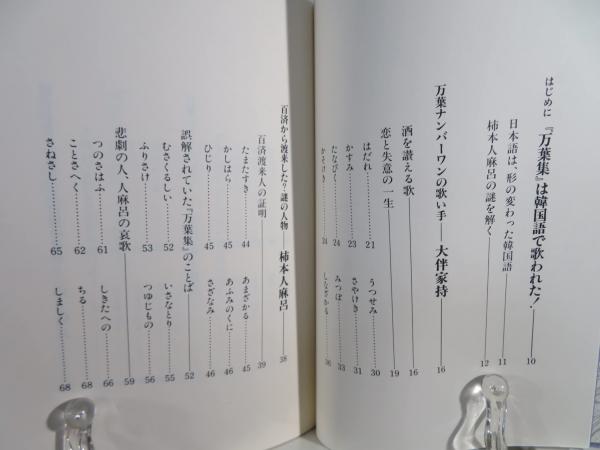 はじめに 『万葉集』は韓国語で歌われた!――10
日本語は、形の変わった韓国語――11
柿本人麻呂の謎を解く――12
万葉ナンバーワンの歌い手――大伴家持 16
酒を讃える歌――16
恋と失意の一生――19
はだれ……21 うつせみ……30
かすみ……23 さやけき……31
たなびく……24 みつぼ……33
かそけき……24 しなざかる……36
百済から渡来した?謎の人物――柿本人麻呂――38
百済渡来人の証明――39
たまだすき……44 あまざかる……45
かしはら……45 あふみのくに……46
ひじり……45 さざなみ……46
誤解されていた『万葉集』のことば――52
むさくるしい……52 いさなとり……55
ふりさけ……53 つゆじもの……56
悲劇の人、人麻呂の哀歌――59
つのさはふ……61 しきたへの……66
ことさへく……62 ちる……68
さねさし……65 しましく……68